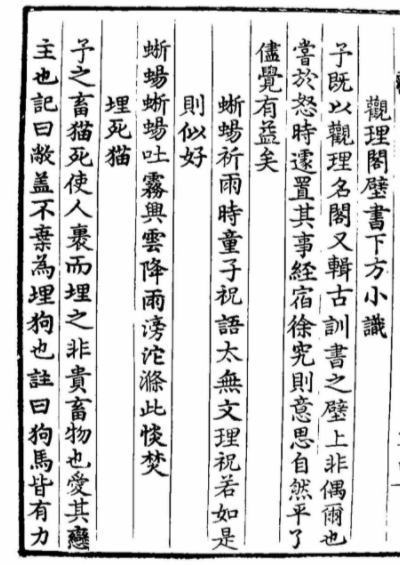 觀理閣壁書下方小識
予既以觀理名閣又輯古訓書之壁上非偶爾也
嘗於怒時遽置其事經宿徐究則意思自然平了
儘覺有益矣
蜥蜴祈雨時童子祝語太無文理祝若如是
則似好
蜥蜴蜥蜴吐霧興雲降雨滂沱滌此惔焚
埋死猫
予之畜猫死使人裹而埋之非貴畜物也愛其戀
主也記曰敝盖不棄為埋狗也註曰狗馬皆有力